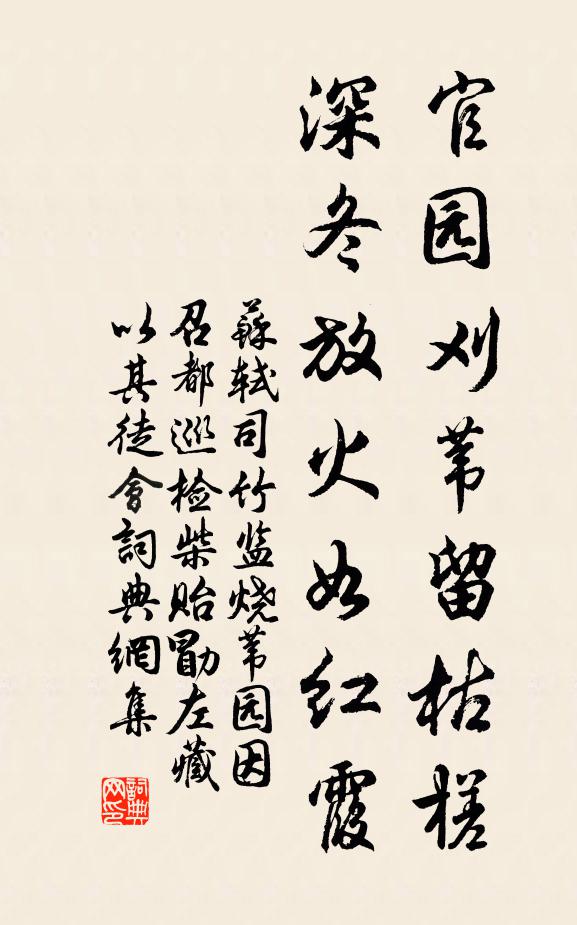 官园刈苇留枯槎
深冬放火如红霞
蘇轼司竹监烧苇园因
召都巡检柴贻勖左藏
以其徒會詞典網集
詞典
网印